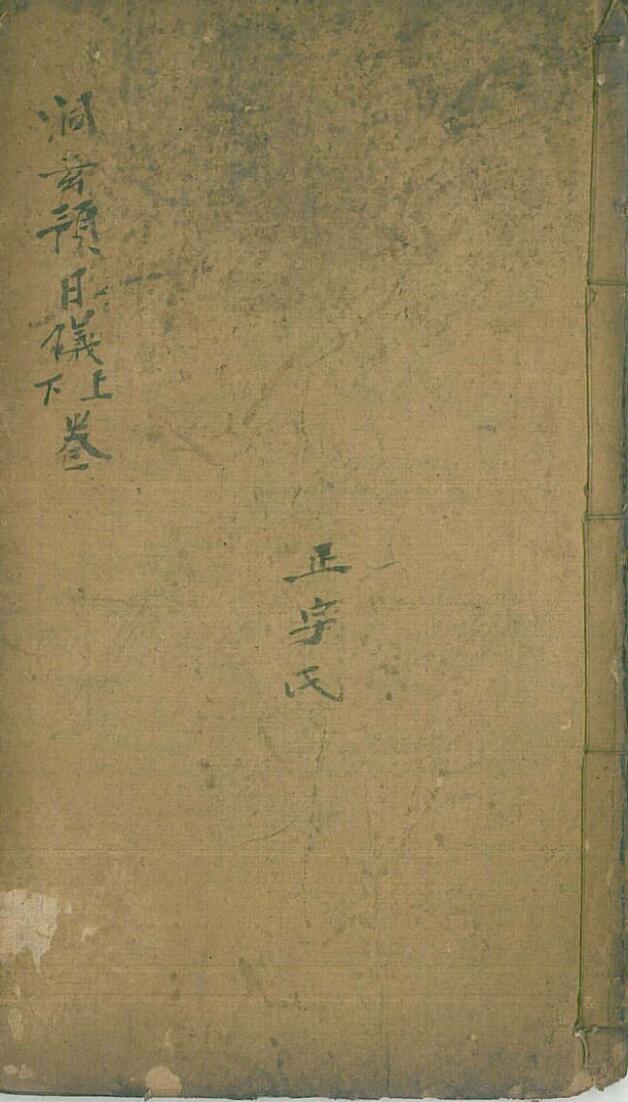 洞玄預日儀上下卷
正字氏